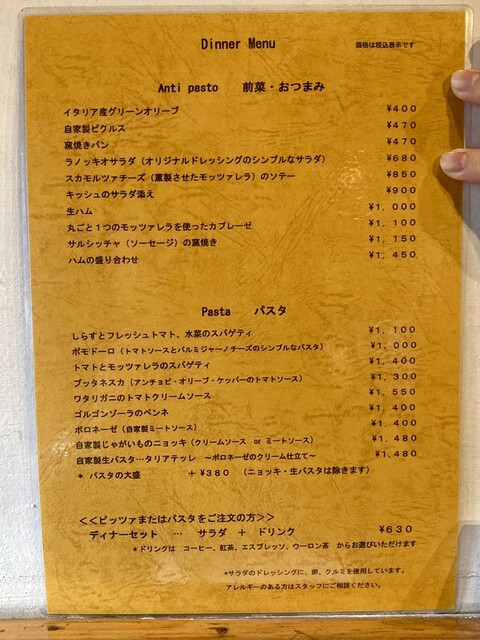 Dinner Menu
価格は税込表示です
Anti pasto 前菜・おつまみ
イタリア産グリーンオリーブ ¥400
自家製ピクルス ¥470
窯焼きパン ¥470
ラノッキオサラダ（オリジナルドレッシングのシンプルなサラダ） ¥680
スカモルツァチーズ（薫製させたモッツァレラ）のソテー ¥850
キッシュのサラダ添え ¥900
生ハム ¥1,000
丸ごと1つのモッツァレラを使ったカプレーゼ ¥1,100
サルシッチャ（ソーセージ）の窯焼き ¥1,150
ハムの盛り合わせ ¥1,450
Pasta パスタ
しらすとフレッシュトマト、水菜のスパゲティ ¥1,100
ポモドーロ（トマトソースとパルミジャーノチーズのシンプルなパスタ） ¥1,000
トマトとモッツァレラのスパゲティ ¥1,400
プッタネスカ（アンチョビ・オリーブ・ケッパーのトマトソース） ¥1,300
ワタリガニのトマトクリームソース ¥1,550
ゴルゴンゾーラのペンネ ¥1,400
ボロネーゼ（自家製ミートソース） ¥1,400
自家製じゃがいものニョッキ（クリームソース or ミートソース） ¥1,480
自家製生パスタ…タリアテッレ ～ボロネーゼのクリーム仕立て～ ¥1,480
* パスタの大盛 +¥380 （ニョッキ・生パスタは除きます）
<<ピッツァまたはパスタをご注文の方>>
ディナーセット … サラダ + ドリンク ¥630
*ドリンクは コーヒー、紅茶、エスプレッソ、ウーロン茶 からお選びいただけます
*サラダのドレッシングに、卵、クルミを使用しています。
アレルギーのある方はスタッフにご相談ください。